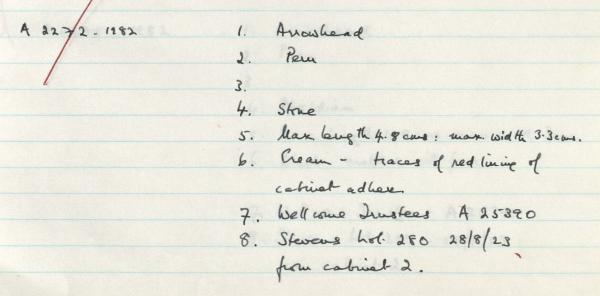 A 2272-1982
1. Arrowhead
2. Peru
3.
4. Stone
5. Max length 4.8cms: max. width 3.3cms.
6. Cream - traces of red lining of
cabinet adhere.
7. Wellcome Trustees A 25390
8. Stevens Lot. 280 28/8/23
from cabinet 2.